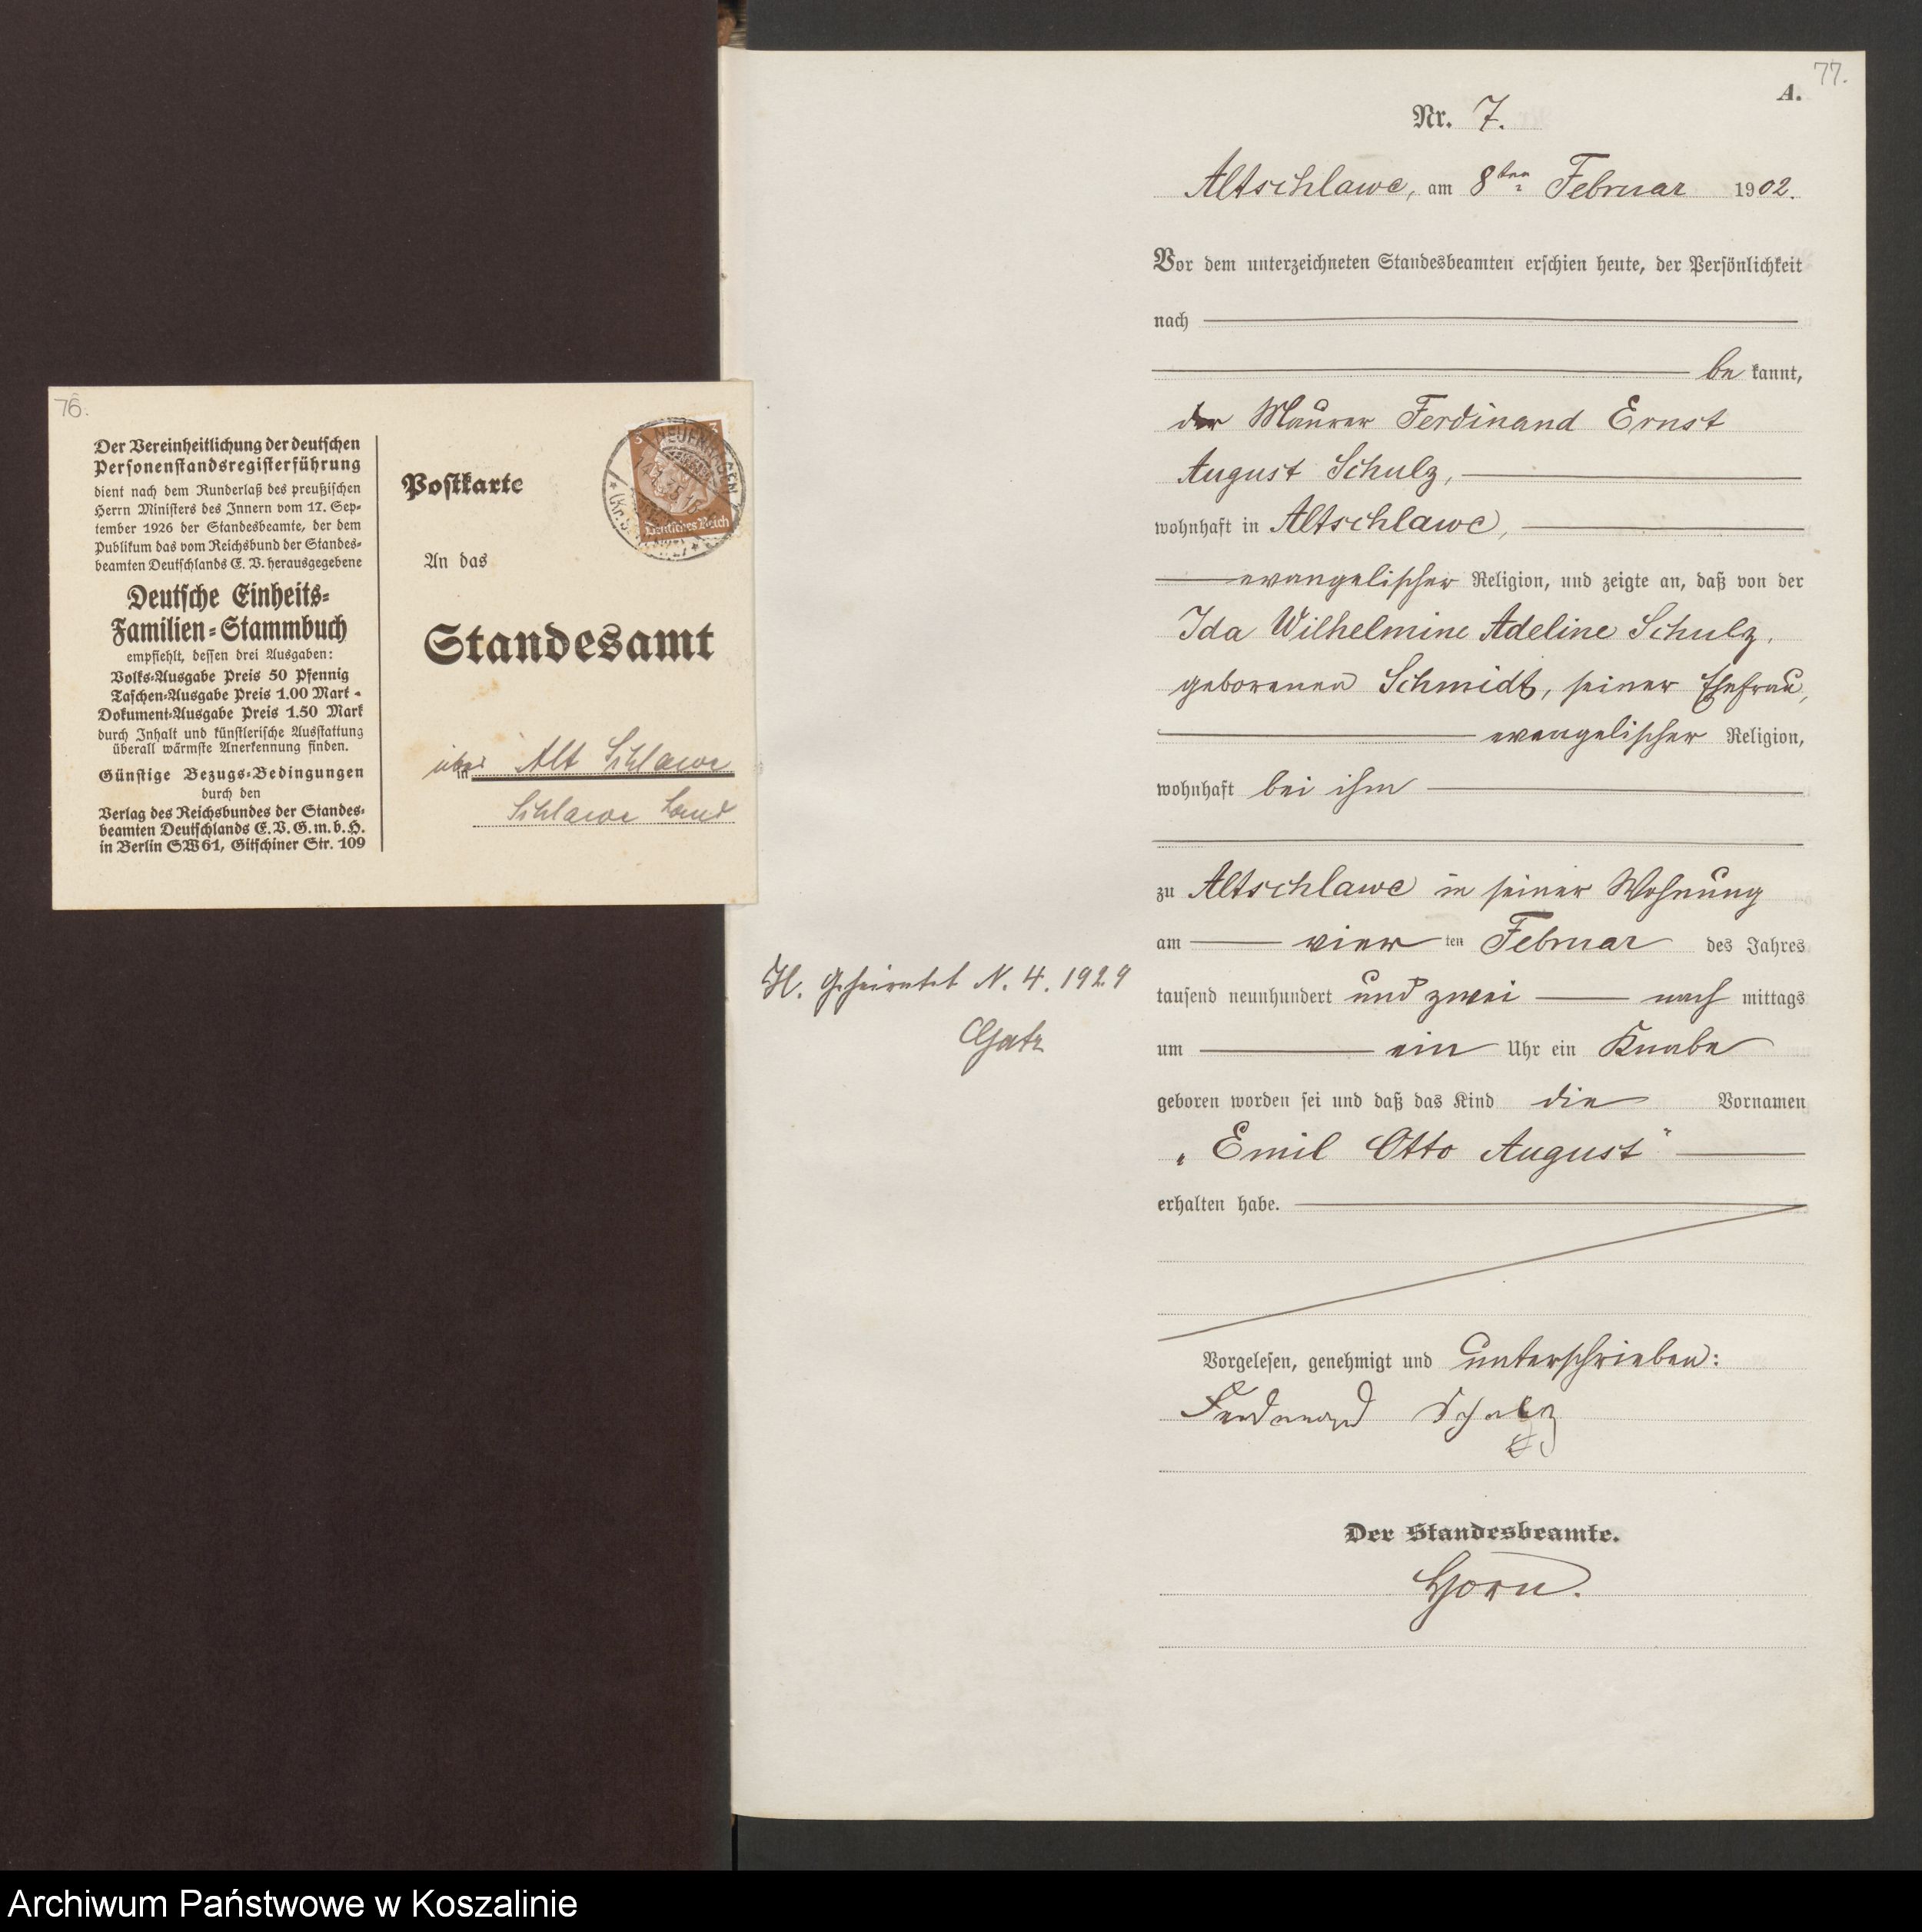 76.
Der Vereinheitlichung der deutschen
Personenstandsregisterführung
dient nach dem Runderlaß des preußischen
Herrn Ministers des Innern vom 17. Sep-
tember 1926 der Standesbeamte, der dem
Publikum das vom Reichsbund der Standes-
beamten Deutschlands E. V. herausgegebene
Deutsche Einheits-
Familien-Stammbuch
empfiehlt, dessen drei Ausgaben:
Volks-Ausgabe Preis 50 Pfennig
Taschen-Ausgabe Preis 1.00 Mark
Dokument-Ausgabe Preis 1.50 Mark
durch Inhalt und künstlerische Ausstattung
überall wärmste Anerkennung finden.
Günstige Bezugs-Bedingungen
durch den
Verlag des Reichsbundes der Standes-
beamten Deutschlands E. V. G. m. b. H.
in Berlin SW 61, Gitschiner Str. 109
Postkarte
3 3
NEUENHAGEN
Deutsches Reich
An das
Standesamt
in Alt Schlawe
Schlawe Land
77.
A.
Nr. 7.
Altschlawe, am 8ten Februar 1902.
Vor dem unterzeichneten Standesbeamten erschien heute, der Persönlichkeit
nach
be kannt,
der Maurer Ferdinand Ernst
August Schulz,
wohnhaft in Altschlawe,
evangelischer Religion, und zeigte an, daß von der
Ida Wilhelmine Adeline Schulz,
geborenen Schmidt, seiner Ehefrau,
evangelischer Religion,
wohnhaft bei ihm
zu Altschlawe in seiner Wohnung
am vier ten Februar des Jahres
tausend neunhundert und zwei nach mittags
um ein Uhr ein Knabe
geboren worden sei und daß das Kind die Vornamen
„Emil Otto August“
erhalten habe.
Vorgelesen, genehmigt und unterschrieben:
Ferdinand Schulz
Der Standesbeamte.
Horn.
H. Geheiratet N. 4. 1929
Archiwum Państwowe w Koszalinie